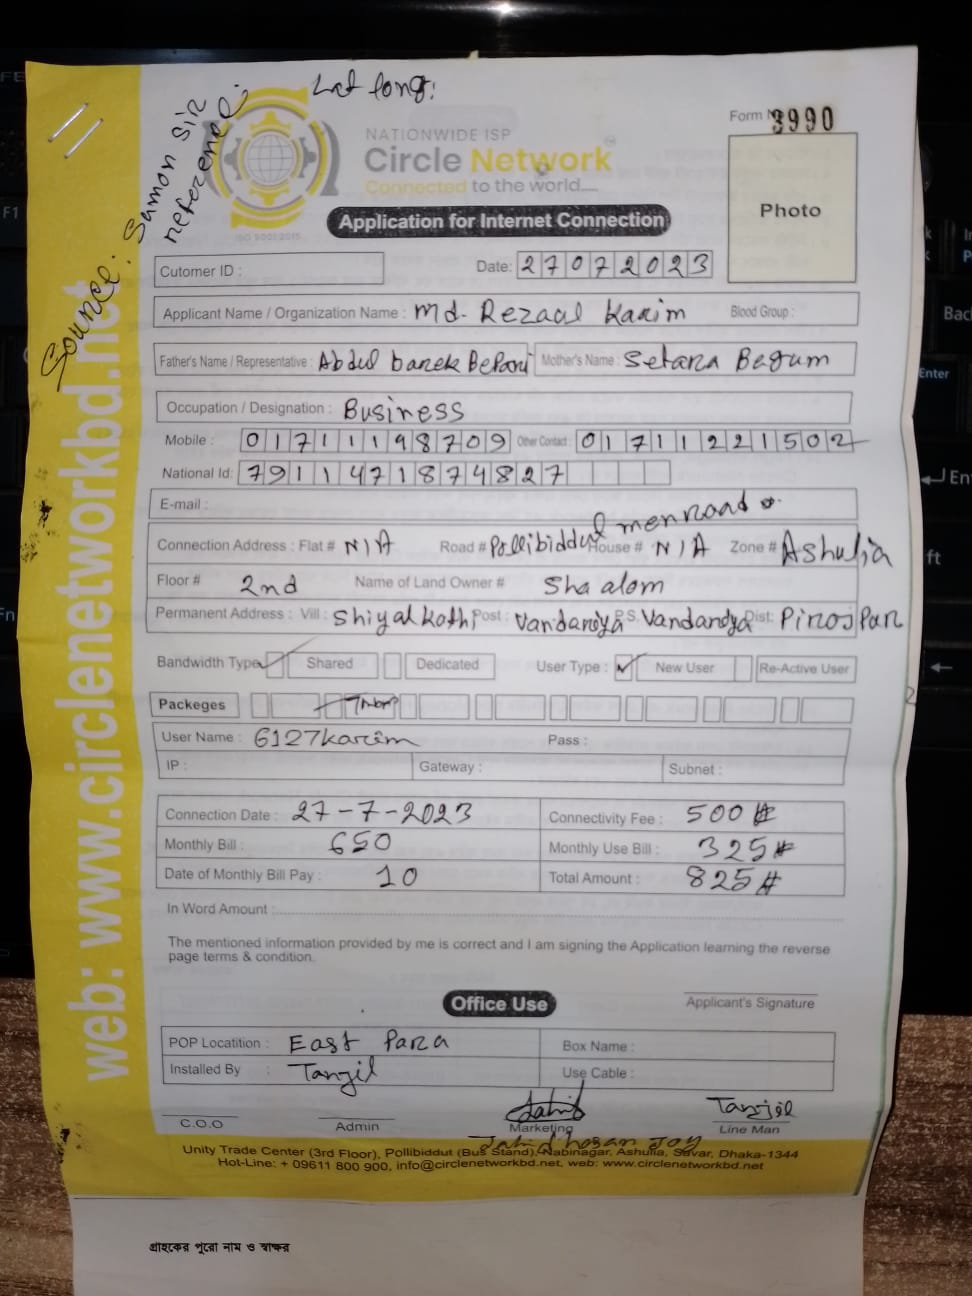 Lat long:
Source: Sumon Sir reference.
NATIONWIDE ISP
Circle Network
Connected to the world....
ISO 9001:2015
Form N 3990
Photo
Application for Internet Connection
Cutomer ID : Date: 27072023
Applicant Name / Organization Name : Md. Rezaul Karim Blood Group :
Father's Name / Representative : Abdul barek Mother's Name : Setara Begum
Occupation / Designation : Business
Mobile : 01711198709 Other Contact : 01711221502
National Id: 7911471874827
E-mail :
Connection Address : Flat # N/A Road # Pollibiddut menroad House # N/A Zone # Ashulia
Floor # 2nd Name of Land Owner # Sha alom
Permanent Address : Vill : Shiyalkathi Post : Vandariya P.S. Vandarya Dist: Pirospur
Bandwidth Type Shared Dedicated User Type : ✓ New User Re-Active User
Packeges 7Mbps
User Name : 6127karim Pass :
IP : Gateway : Subnet :
Connection Date : 27-7-2023 Connectivity Fee : 500
Monthly Bill : 650 Monthly Use Bill : 325
Date of Monthly Bill Pay : 10 Total Amount : 825
In Word Amount :
The mentioned information provided by me is correct and I am signing the Application learning the reverse
page terms & condition.
Applicant's Signature
Office Use
POP Locatition : East Para Box Name :
Installed By : Tanjil Use Cable :
C.O.O Admin Marketing Tanjil Line Man
Jahid hosan Joy
Unity Trade Center (3rd Floor), Pollibiddut (Bus Stand), Nabinagar, Ashulia, Savar, Dhaka-1344
Hot-Line: + 09611 800 900, info@circlenetworkbd.net, web: www.circlenetworkbd.net
web: www.circlenetworkbd.net
গ্রাহকের পুরো নাম ও স্বাক্ষর